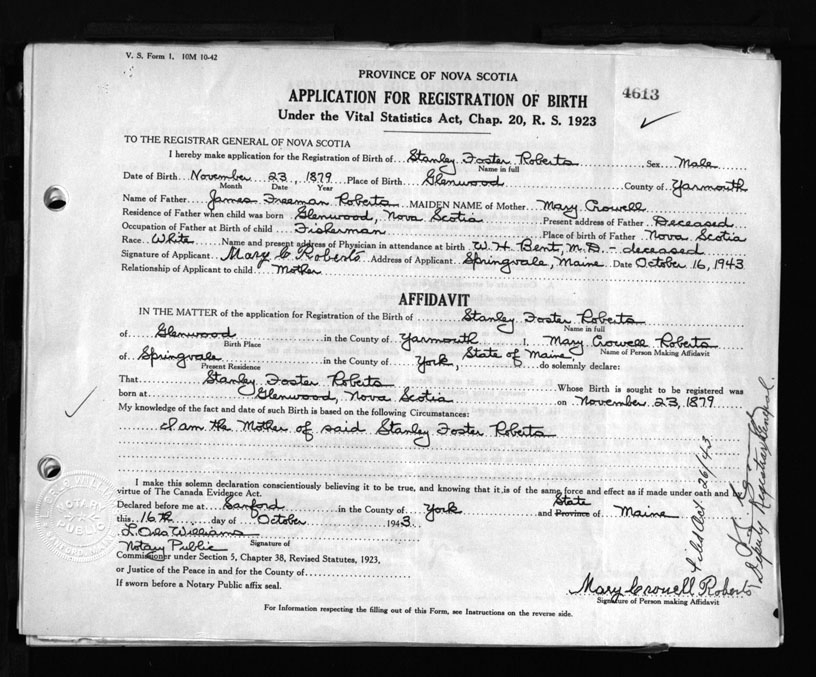 V. S. Form 1. 10M 10-42
PROVINCE OF NOVA SCOTIA
4613
APPLICATION FOR REGISTRATION OF BIRTH
Under the Vital Statistics Act, Chap. 20, R. S. 1923
TO THE REGISTRAR GENERAL OF NOVA SCOTIA
I hereby make application for the Registration of Birth of Stanley Foster Roberts Sex Male
Name in full
Date of Birth November 23, 1879 Place of Birth Glenwood County of Yarmouth
Month Date Year
Name of Father James Freeman Roberts MAIDEN NAME of Mother Mary Crowell
Residence of Father when child was born Glenwood, Nova Scotia Present address of Father Deceased
Occupation of Father at Birth of child Fisherman Place of birth of Father Nova Scotia
Race White Name and present address of Physician in attendance at birth W. H. Bent, M.D. - deceased
Signature of Applicant Mary C Roberts Address of Applicant Springvale, Maine Date October 16, 1943
Relationship of Applicant to child Mother
AFFIDAVIT
IN THE MATTER of the application for Registration of the Birth of Stanley Foster Roberts
Name in full
of Glenwood in the County of Yarmouth I, Mary Crowell Roberts
Birth Place Name of Person Making Affidavit
of Springvale in the County of York, State of Maine, do solemnly declare:
Present Residence
That Stanley Foster Roberts Whose Birth is sought to be registered was
born at Glenwood, Nova Scotia on November 23, 1879
My knowledge of the fact and date of such Birth is based on the following Circumstances:
I am the Mother of said Stanley Foster Roberts
I make this solemn declaration conscientiously believing it to be true, and knowing that it is of the same force and effect as if made under oath and by
virtue of The Canada Evidence Act.
State
Declared before me at Sanford in the County of York and Province of Maine
this 16th day of October 1943
L. Williams
Signature of
Notary Public
Commissioner under Section 5, Chapter 38, Revised Statutes, 1923,
or Justice of the Peace in and for the County of
If sworn before a Notary Public affix seal.
Mary Crowell Roberts
Signature of Person making Affidavit
For Information respecting the filling out of this Form, see Instructions on the reverse side.
NOTARY
PUBLIC
Filed Oct. 26/43
Deputy Registrar General.